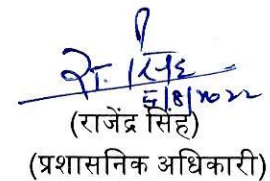 रा. सिंह
5/8/2022
(राजेंद्र सिंह)
(प्रशासनिक अधिकारी)